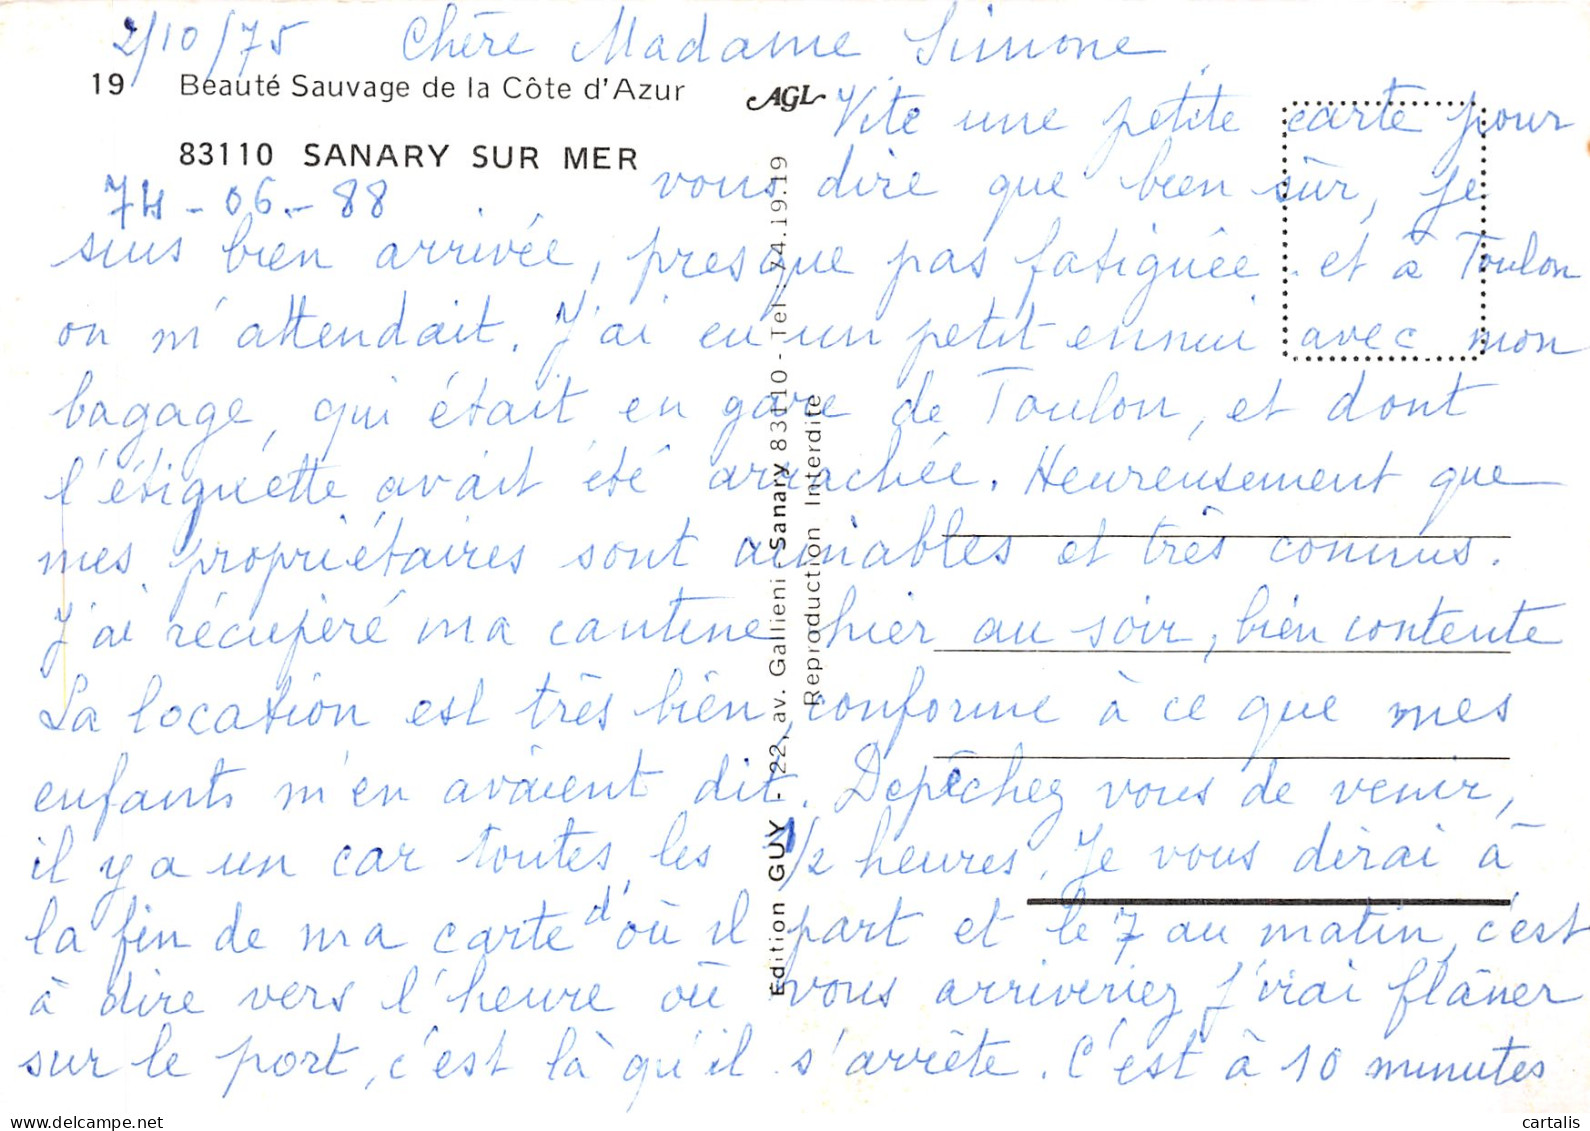 2/10/75 Chère Madame Simone,
19 Beauté Sauvage de la Côte d'Azur
AGL
Vite une petite carte pour
83110 SANARY SUR MER
vous dire que bien sûr, je
74-06-88
suis bien arrivée, presque pas fatiguée et à Toulon
on m'attendait. J'ai eu un petit ennui avec mon
bagage, qui était en gare de Toulon, et dont
l'étiquette avait été arrachée. Heureusement que
mes propriétaires sont aimables et très connus.
J'ai récupéré ma cantine hier au soir, bien contente
La location est très bien, conforme à ce que mes
enfants m'en avaient dit. Depêchez vous de venir,
il y a un car toutes les 1/2 heures. Je vous dirai à
la fin de ma carte d'où il part et le 7 au matin, c'est
à dire vers l'heure où vous arriveriez j'irai flâner
sur le port, c'est là qu'il s'arrête. C'est à 10 minutes
Edition GUY - 22, av. Gallieni - Sanary 83110 - Tel : 74.19.19
Reproduction Interdite
cartalis